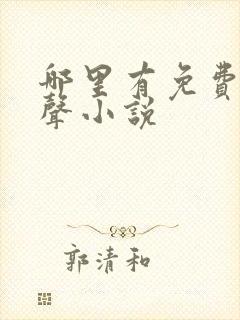 哪里有免費
聲小說
郭清和